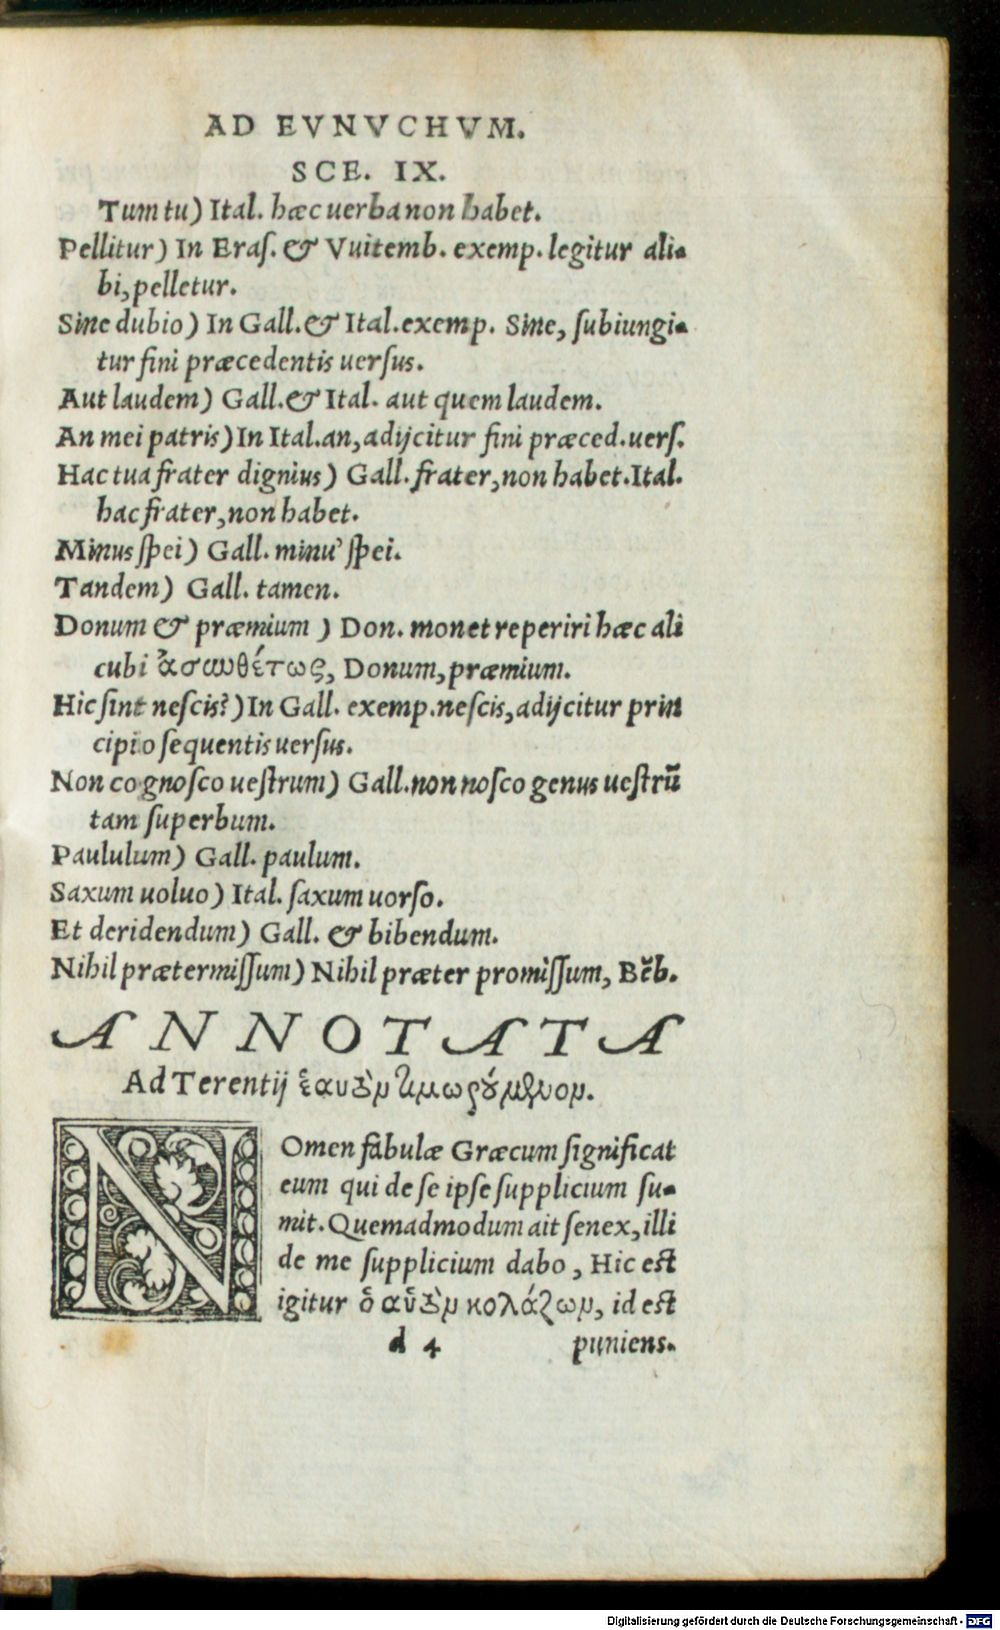 AD EVNVCHVM.
SCE. IX.
Tum tu) Ital. hæc uerba non habet.
Pellitur) In Eraſ. & Vuitemb. exemp. legitur ali-
bi, pelletur.
Sine dubio) In Gall. & Ital. exemp. Sine, ſubiungi-
tur fini præcedentis uerſus.
Aut laudem) Gall. & Ital. aut quem laudem.
An mei patris) In Ital. an, adijcitur fini præced. uerſ.
Hac tua frater dignius) Gall. frater, non habet. Ital.
hac frater, non habet.
Minus ſpei) Gall. minu' ſpei.
Tandem) Gall. tamen.
Donum & præmium ) Don. monet reperiri hæc ali
cubi ἀσαυθέτως, Donum, præmium.
Hic ſint neſcis?) In Gall. exemp. neſcis, adijcitur prin
cipio ſequentis uerſus.
Non cognoſco ueſtrum) Gall. non noſco genus ueſtrũ
tam ſuperbum.
Paululum) Gall. paulum.
Saxum uoluo) Ital. ſaxum uorſo.
Et deridendum) Gall. & bibendum.
Nihil prætermiſſum) Nihil præter promiſſum, Bẽb.
ANNOTATA
Ad Terentij ἑαυτὸν τιμωρούμενον.
NOmen fabulæ Græcum ſignificat
eum qui de ſe ipſe ſupplicium ſu-
mit. Quemadmodum ait ſenex, illi
de me ſupplicium dabo, Hic est
igitur ὁ αὑτὸν κολάζων, id est
d 4 puniens.
Digitalisierung gefördert durch die Deutsche Forschungsgemeinschaft - DFG